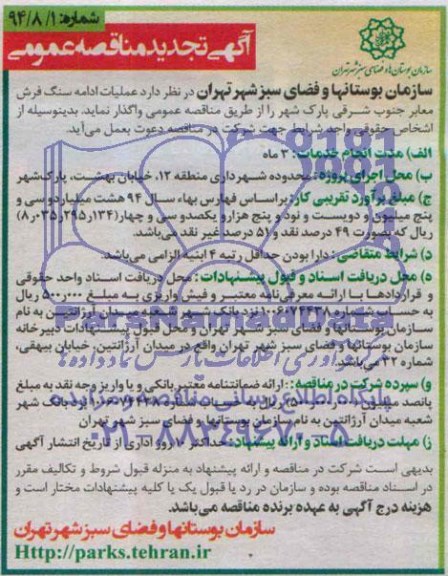 شماره: ۹۴/۸/۱
آگهی تجدید مناقصه عمومی
سازمان بوستان ها و فضای سبز شهر تهران
سازمان بوستانها و فضای سبز شهر تهران در نظر دارد عملیات ادامه سنگ فرش
معابر جنوب شرقی پارک شهر را از طریق مناقصه عمومی واگذار نماید. بدینوسیله از
اشخاص حقوقی واجد شرایط جهت شرکت در مناقصه دعوت بعمل می‌آید.
الف) مدت انجام خدمات: ۳ ماه
ب) محل اجرای پروژه: محدوده شهرداری منطقه ۱۲، خیابان بهشت، پارک‌شهر
ج) مبلغ برآورد تقریبی کار: براساس فهارس بهاء سال ۹۴ هشت میلیارد و سی و
پنج میلیون و دویست و نود و پنج هزار و یکصد و سی و چهار (۸٫۰۳۵٫۲۹۵٫۱۳۴)
ریال که بصورت ۴۹ درصد نقد و ۵۱ درصد غیر نقد می‌باشد.
د) شرایط متقاضی: دارا بودن حداقل رتبه ۴ ابنیه الزامی می‌باشد.
ه) محل دریافت اسناد و قبول پیشنهادات: محل دریافت اسناد واحد حقوقی
و قراردادها با ارائه معرفی‌نامه معتبر و فیش واریزی به مبلغ ۵۰۰٫۰۰۰ ریال
به حساب شماره نزد بانک شهر شعبه میدان آرژانتین به نام
سازمان بوستانها و فضای سبز شهر تهران و محل قبول پیشنهادات دبیرخانه
سازمان بوستانها و فضای سبز شهر تهران واقع در میدان آرژانتین، خیابان بیهقی،
شماره ۳۲ می‌باشد.
و) سپرده شرکت در مناقصه: ارائه ضمانتنامه معتبر بانکی و یا واریز وجه نقد به مبلغ
پانصد میلیون ریال به شماره نزد بانک شهر
شعبه میدان آرژانتین به نام سازمان بوستانها و فضای سبز شهر تهران
ز) مهلت دریافت اسناد و ارائه پیشنهاد: حداکثر ۱۰ روز اداری از تاریخ انتشار آگهی
بدیهی است شرکت در مناقصه و ارائه پیشنهاد به منزله قبول شروط و تکالیف مقرر
در اسناد مناقصه بوده و سازمان در رد یا قبول یک یا کلیه پیشنهادات مختار است و
هزینه درج آگهی به عهده برنده مناقصه می‌باشد.
سازمان بوستانها و فضای سبز شهر تهران
Http://parks.tehran.ir
ParsNamadData
گردآوری اطلاعات پارس نماد داده ها
پایگاه اطلاع رسانی مناقصه و مزایده
۰۲۱-۸۸۳۴۹۶۷۰-۵